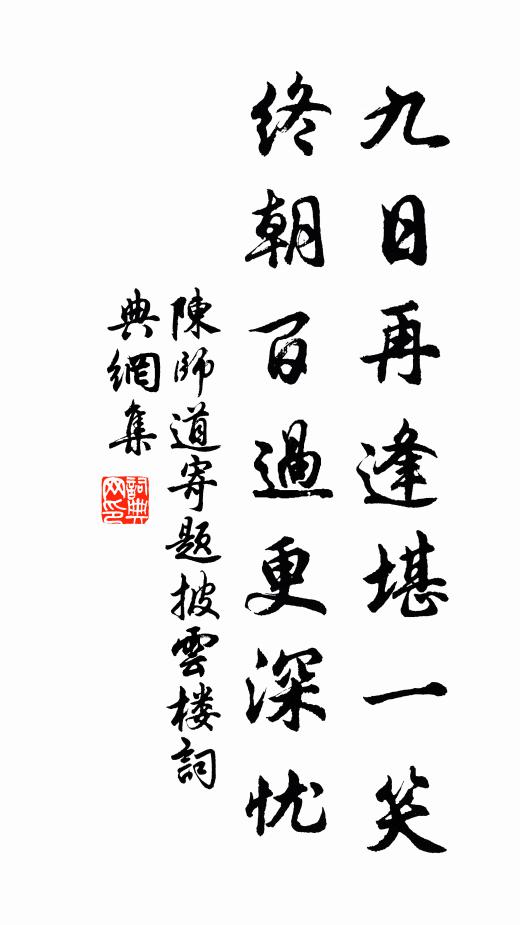 九日再逢堪一笑
終朝百過更深忧
陳師道寄題披雲楼詞
典網集
詞典网印